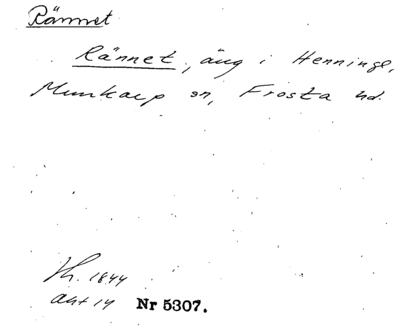 Rännet
Rännet, äng i Henninge,
Munkarp sn, Frosta hd.
Th. 1844
akt 14 Nr 5307.